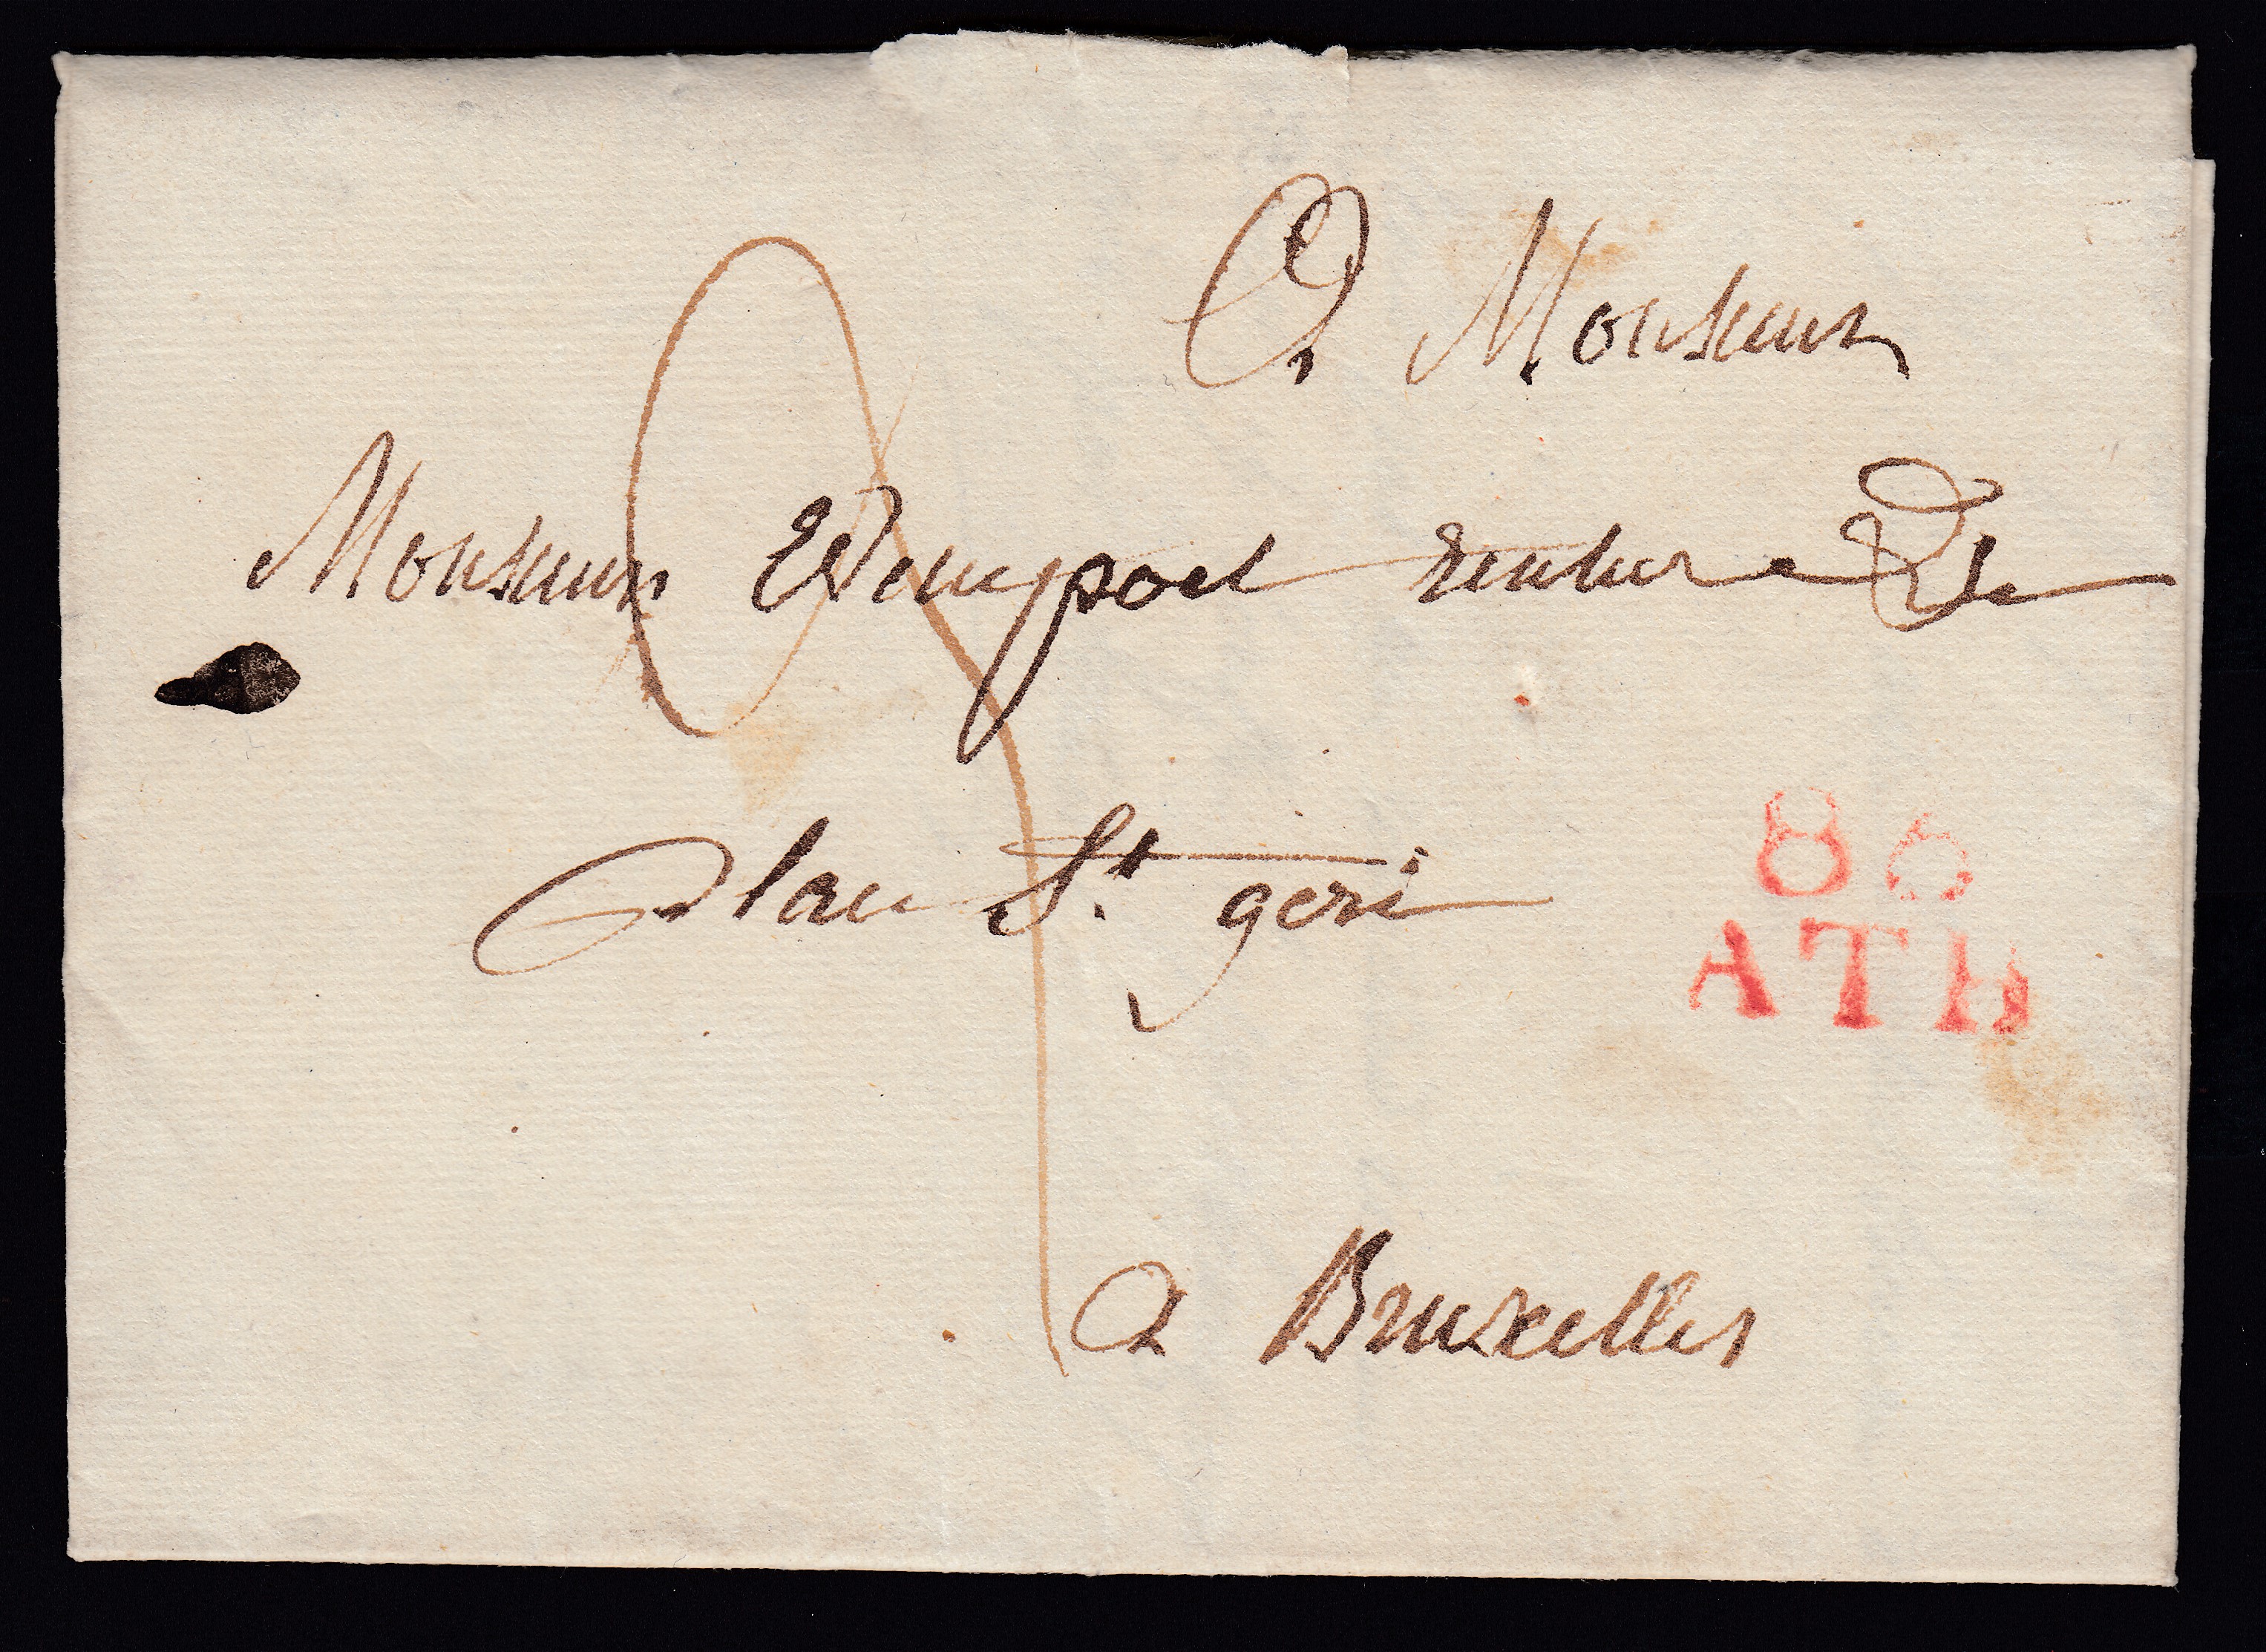 A Monsieur
Monsieur Wempoel rentier
place St geri
86
ATH
a Bruxelles